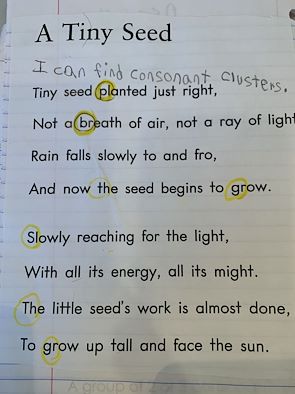 A Tiny Seed
I can find consonant clusters.
Tiny seed planted just right,
Not a breath of air, not a ray of light
Rain falls slowly to and fro,
And now the seed begins to grow.
Slowly reaching for the light,
With all its energy, all its might.
The little seed's work is almost done,
To grow up tall and face the sun.
A group of